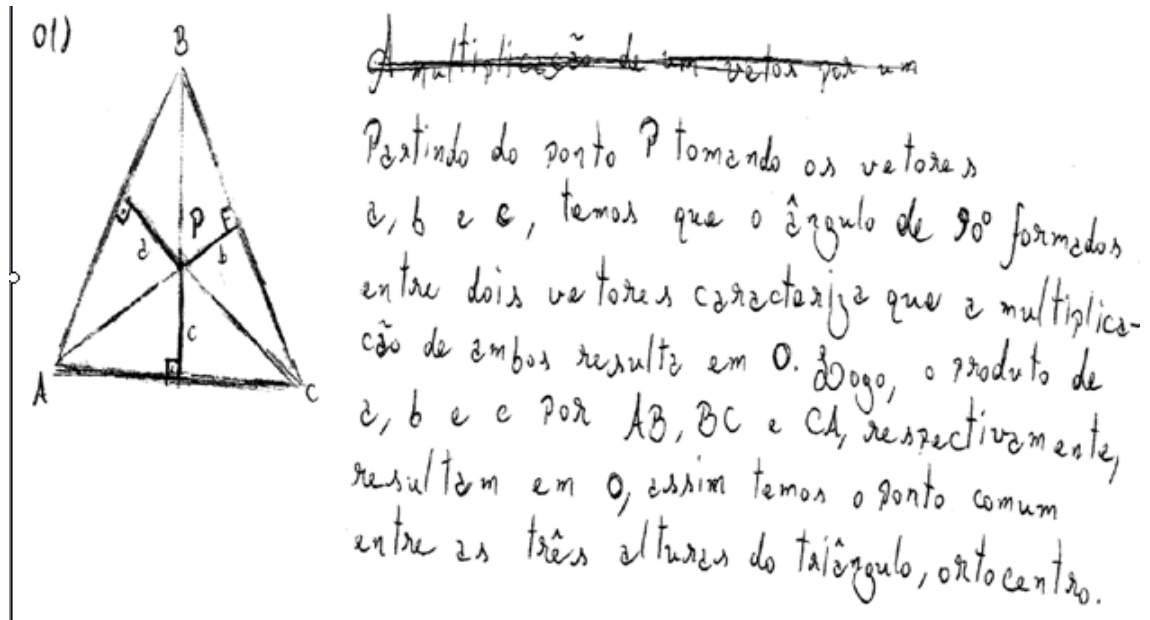 01)
B
P
a
b
c
A
C
A multiplicação de um vetor por um
Partindo do ponto P tomando os vetores
a, b e c, temos que o ângulo de 90° formados
entre dois vetores caracteriza que a multiplica-
ção de ambos resulta em 0. Logo, o produto de
a, b e c por AB, BC e CA, respectivamente,
resultam em 0, assim temos o ponto comum
entre as três alturas do triângulo, ortocentro.